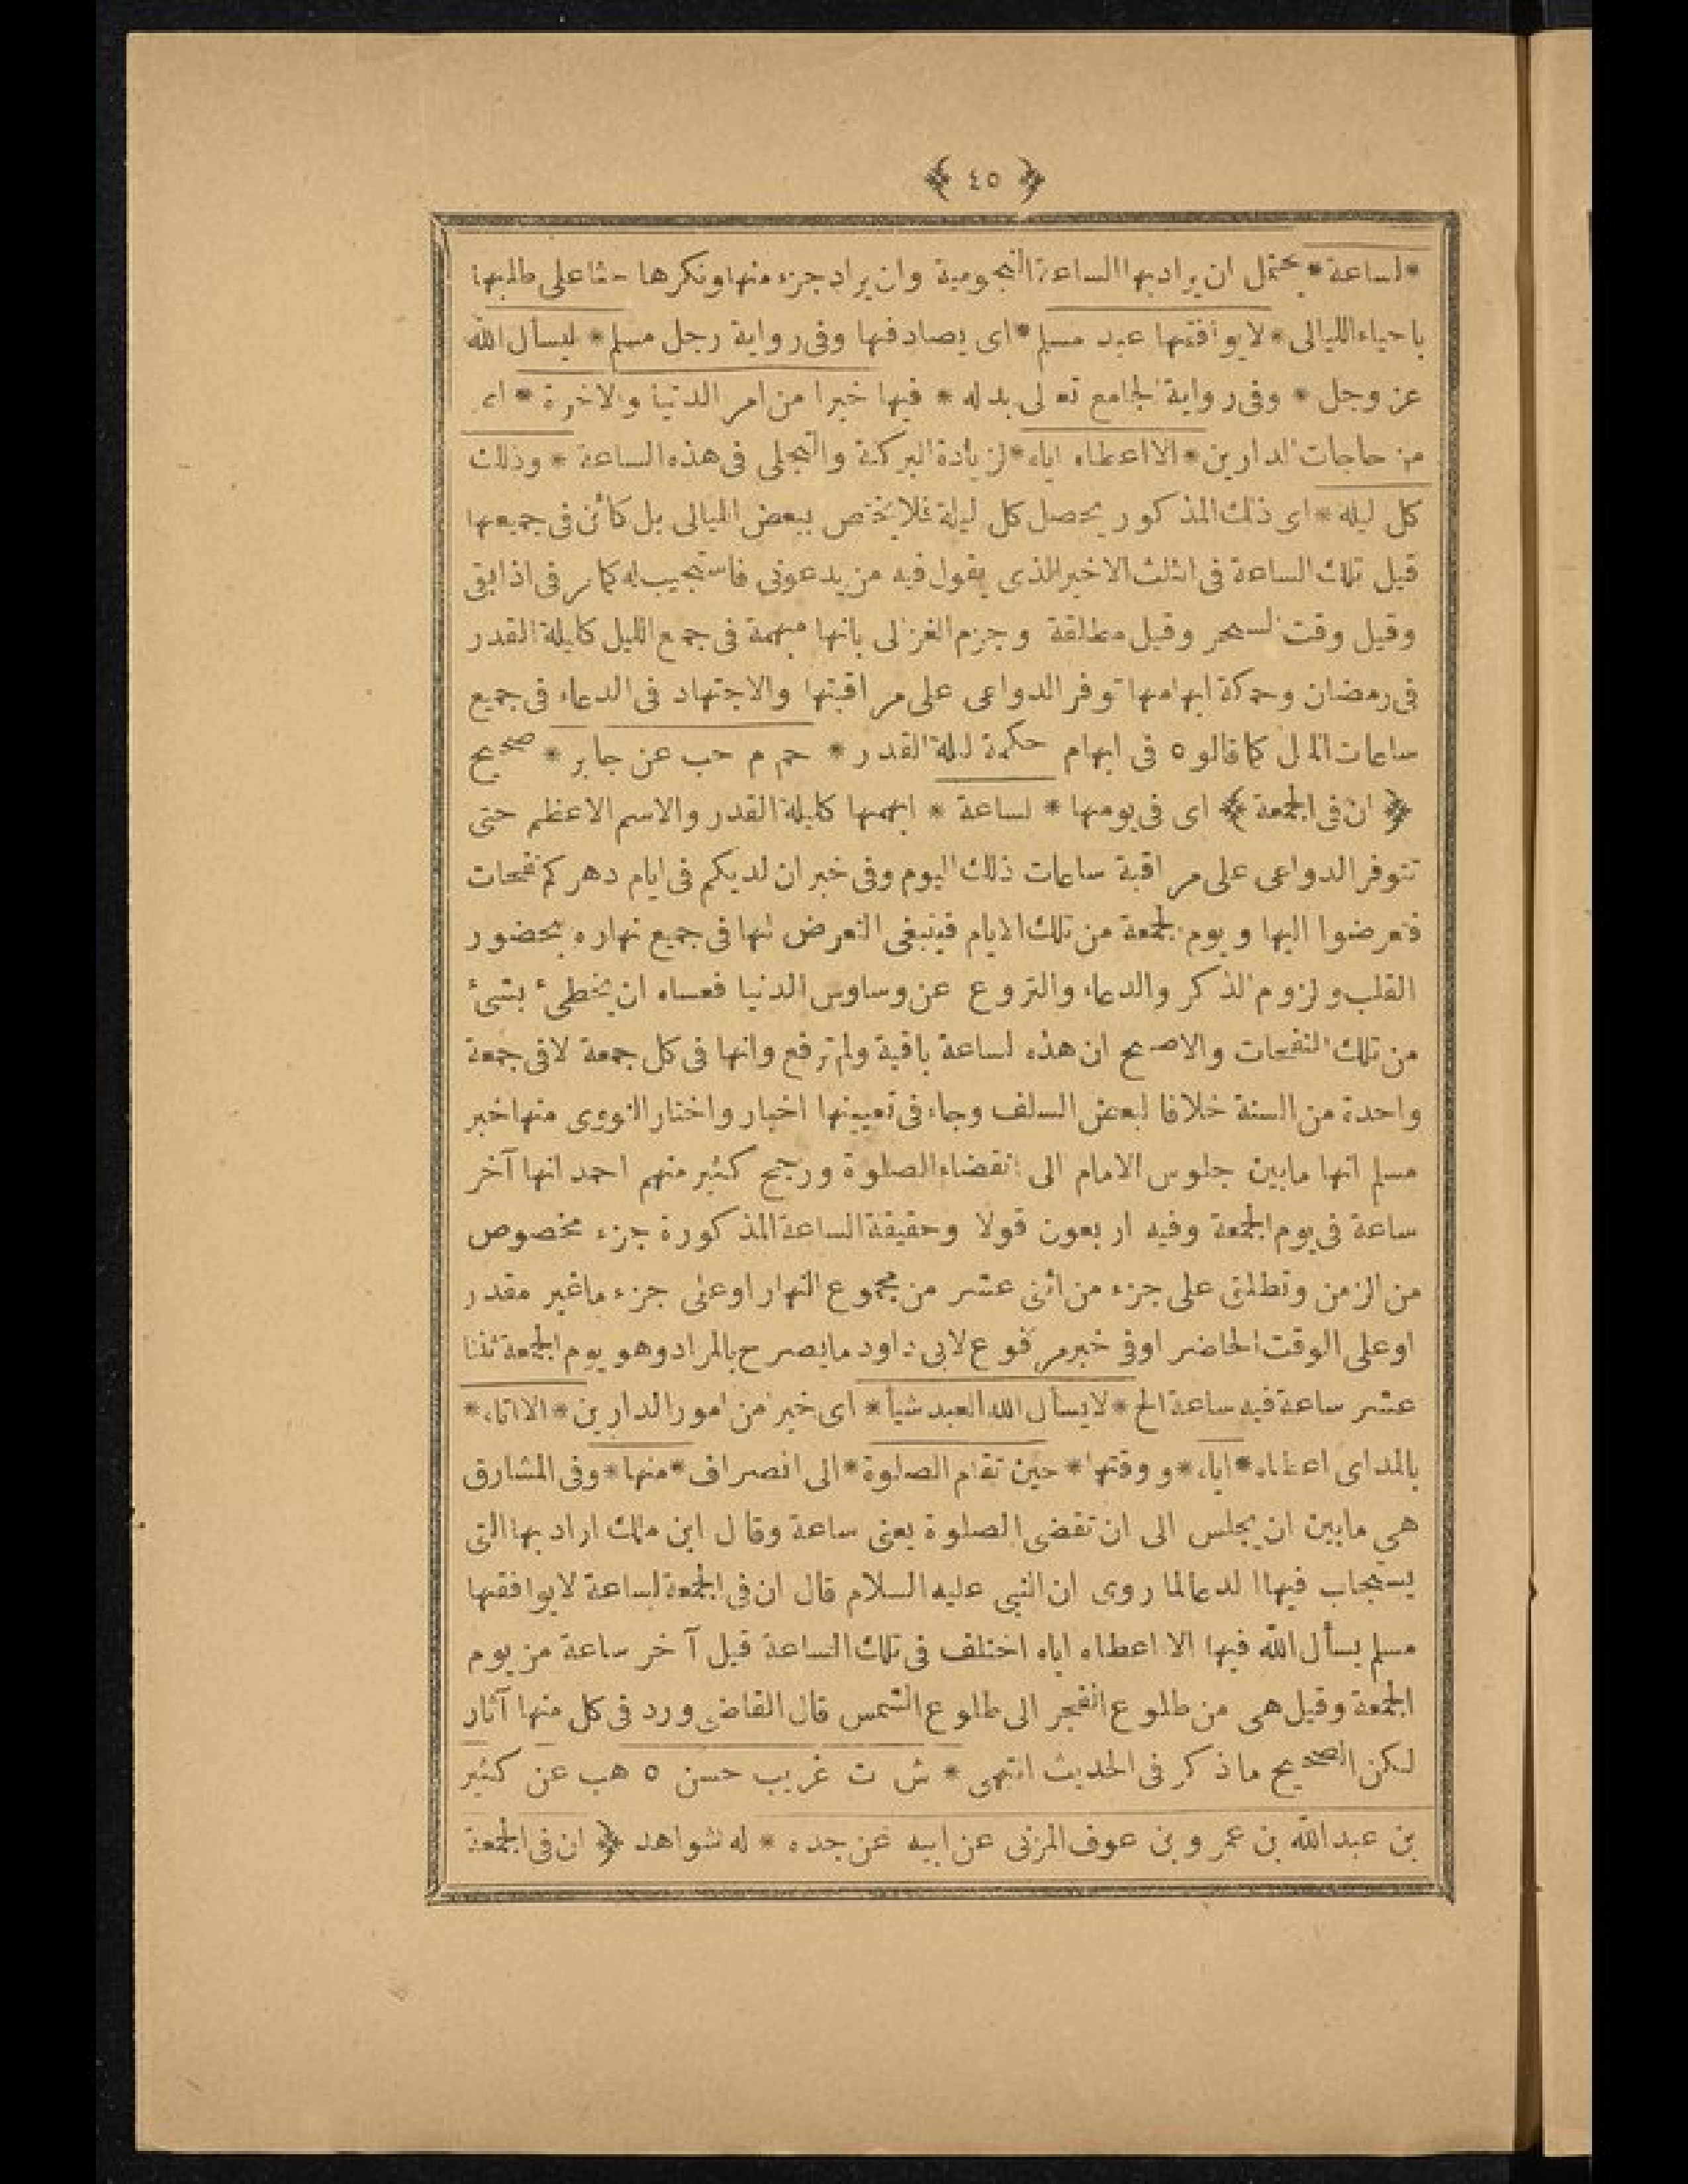 ﴿ ٤٥ ﴾
*لساعة* يحتمل ان يراد بها الساعة النجومية وان يراد جزء منها ونكرها حثا على طلبها
باحياء الليالى * لايوافقها عبد مسلم * اى يصادفها وفى رواية رجل مسلم * ليسأل الله
عز وجل * وفى رواية الجامع تعالى بدله * فيها خيرا من امر الدنيا والاخرة * اى
من حاجات الدارين * الا اعطاه اياه * لزيادة البركة والتجلى فى هذه الساعة * وذلك
كل ليله * اى ذلك المذكور يحصل كل ليلة فلا يختص ببعض الليالى بل كائن فى جميعها
قيل تلك الساعة فى الثلث الاخير الذى يقول فيه من يدعونى فاستجيب له كما مر فى اذا بقى
وقيل وقت السحر وقيل مطلقة وجزم الغزالى بانها مبهمة فى جمع الليل كليلة القدر
فى رمضان وحكمة ابهامها توفر الدواعى على مراقبتها والاجتهاد فى الدعاء فى جميع
ساعات الليل كما قالوه فى ابهام حكمة ليلة القدر * حم م حب عن جابر * صحيح
﴿ ان فى الجمعة ﴾ اى فى يومها * لساعة * ابهمها كليلة القدر والاسم الاعظم حتى
تتوفر الدواعى على مراقبة ساعات ذلك اليوم وفى خبر ان لديكم فى ايام دهركم نفحات
فتعرضوا اليها ويوم الجمعة من تلك الايام فينبغى التعرض لها فى جميع نهاره بحضور
القلب ولزوم الذكر والدعاء والنزوع عن وساوس الدنيا فعساه ان يخطئ بشئ
من تلك النفحات والاصح ان هذه لساعة باقية ولم ترفع وانها فى كل جمعة لا فى جمعة
واحدة من السنة خلافا لبعض السلف وجاء فى تعيينها اخبار واختار النووى منها خبر
مسلم انها مابين جلوس الامام الى انقضاء الصلوة ورجح كثير منهم احمد انها آخر
ساعة فى يوم الجمعة وفيه اربعون قولا وحقيقة الساعة المذكورة جزء مخصوص
من الزمن وتطلق على جزء من اثنى عشر من مجموع النهار او على جزء ما غير مقدر
او على الوقت الحاضر اوفى خبر مرفوع لابى داود ما يصرح بالمراد وهو يوم الجمعة ثنتا
عشر ساعة فيه ساعة الخ * لايسأل الله العبد شيأ * اى خير من امور الدارين * الا اتاه *
بالمد اى اعطاه * اياه * و وقتها * حين تقام الصلوة * الى انصراف * منها * وفى المشارق
هى مابين ان يجلس الى ان تقضى الصلوة يعنى ساعة وقال ابن ملك اراد بها التى
يستجاب فيها الدعا لما روى ان النبى عليه السلام قال ان فى الجمعة لساعة لايوافقها
مسلم يسأل الله فيها الا اعطاه اياه اختلف فى تلك الساعة قيل آخر ساعة من يوم
الجمعة وقيل هى من طلوع الفجر الى طلوع الشمس قال القاضى ورد فى كل منها آثار
لكن الصحيح ما ذكر فى الحديث انتهى * ش ت غريب حسن ه هب عن كثير
بن عبد الله بن عمرو بن عوف المزنى عن ابيه عن جده * له شواهد ﴿ ان فى الجمعة